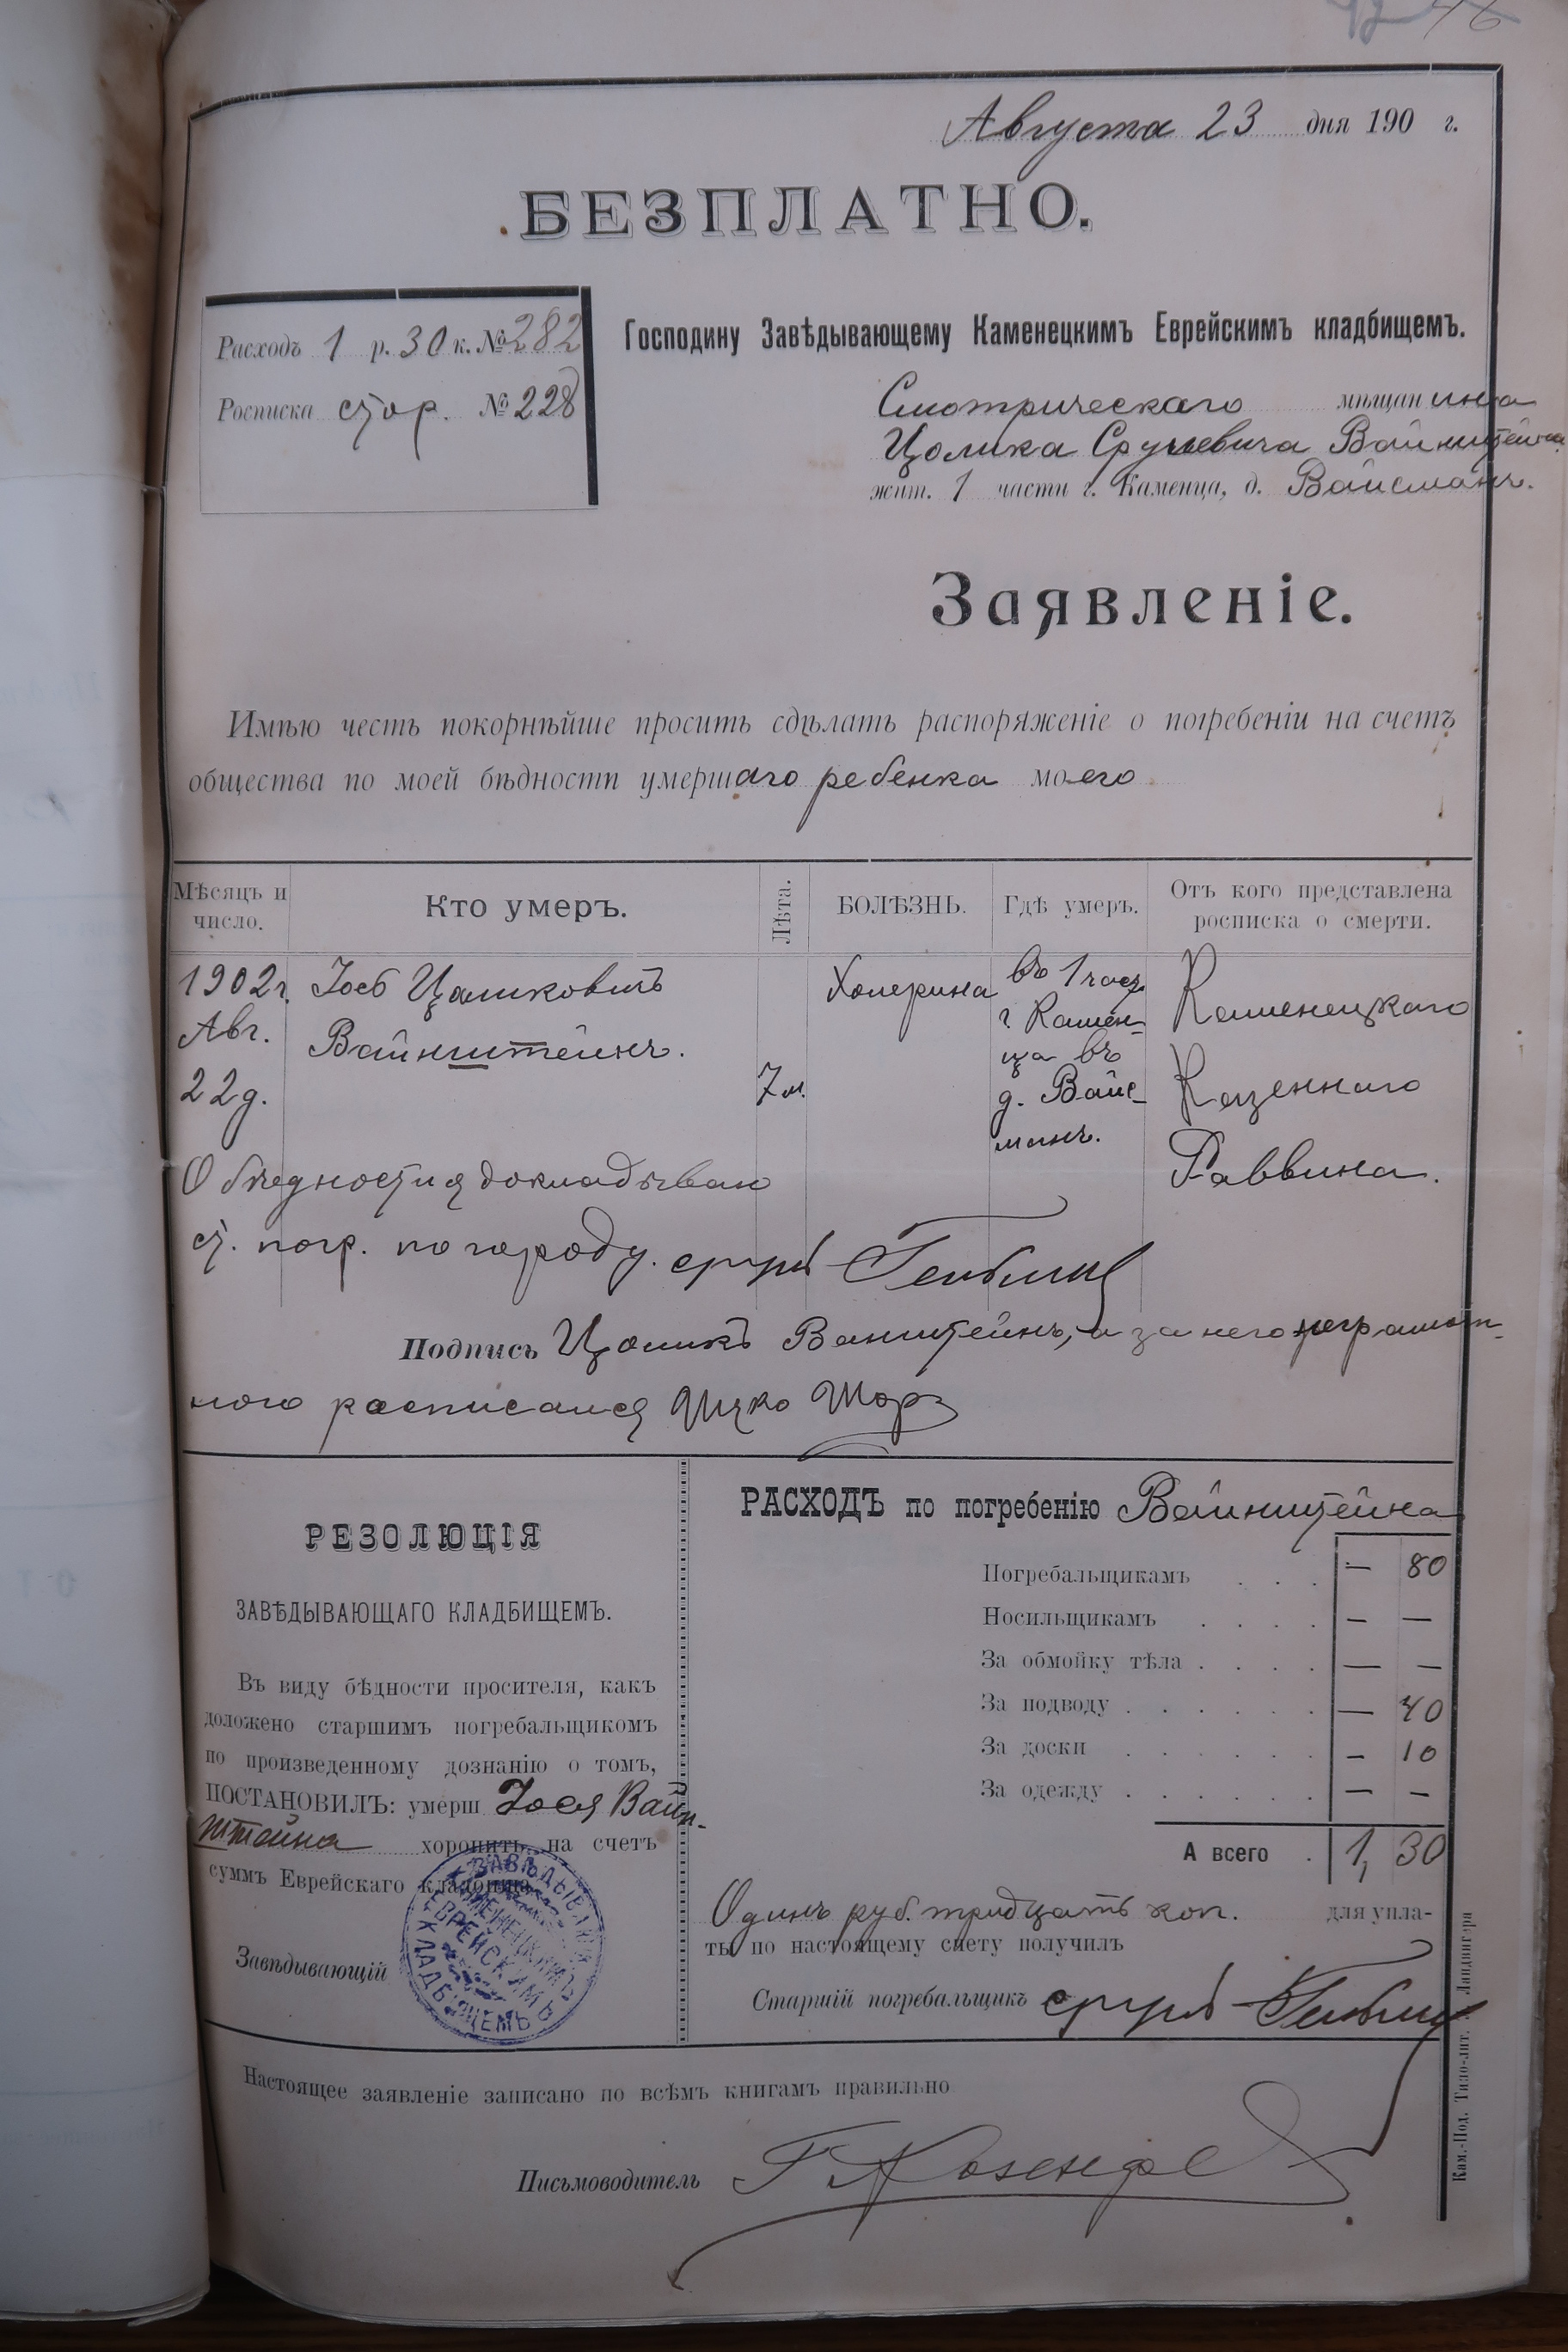 Августа 23 дня 190 г.
БЕЗПЛАТНО.
Расходъ 1 р. 30 к. № 282
Росписка стор. № 228
Господину Завѣдывающему Каменецкимъ Еврейскимъ кладбищемъ.
Смотрическаго мѣщанина
Цолика Срулевича Вайнштейна
жит. 1 части г. Каменца, д. Вайсманъ.
Заявленіе.
Имѣю честь покорнѣйше просить сдѣлать распоряженіе о погребеніи на счетъ
общества по моей бѣдности умершаго ребенка моего
Мѣсяцъ и число. Кто умеръ. Лѣта. БОЛѢЗНЬ. Гдѣ умеръ. Отъ кого представлена росписка о смерти.
1902 г. Іосъ Цаликовичъ Холерина въ 1 част. Каменецкаго
Авг. Вайнштейнъ. г. Камен-
ца въ
22 д. 7 м. д. Вайс- Казеннаго
манъ.
Раввина.
О бѣдности я докладываю
ст. погр. по городу.
Подпись Цоликъ Ванштейнъ, а за него неграмот-
ного росписался Ицко Шорз
РЕЗОЛЮЦІЯ
ЗАВѢДЫВАЮЩАГО КЛАДБИЩЕМЪ.
Въ виду бѣдности просителя, какъ
доложено старшимъ погребальщикомъ
по произведенному дознанію о томъ,
ПОСТАНОВИЛЪ: умерш Іося Вайн-
штейна хоронить на счетъ
суммъ Еврейскаго кладбища
Завѣдывающій
ЗАВѢДЫВАЮЩ
КАМЕНЕЦКИМЪ
ЕВРЕЙСКИМЪ
КЛАДБИЩЕМЪ
РАСХОДЪ по погребенію Вайнштейна
Погребальщикамъ . . . — 80
Носильщикамъ . . . . — —
За обмойку тѣла . . . . — —
За подводу . . . . . . — 40
За доски . . . . . . — 10
За одежду . . . . . . — —
А всего . 1, 30
Одинъ руб. тридцать коп. для упла-
ты по настоящему счету получилъ
Старшій погребальщикъ
Настоящее заявленіе записано по всѣмъ книгамъ правильно
Письмоводитель
Кам.-Под. Типо-лит. Ландвигера